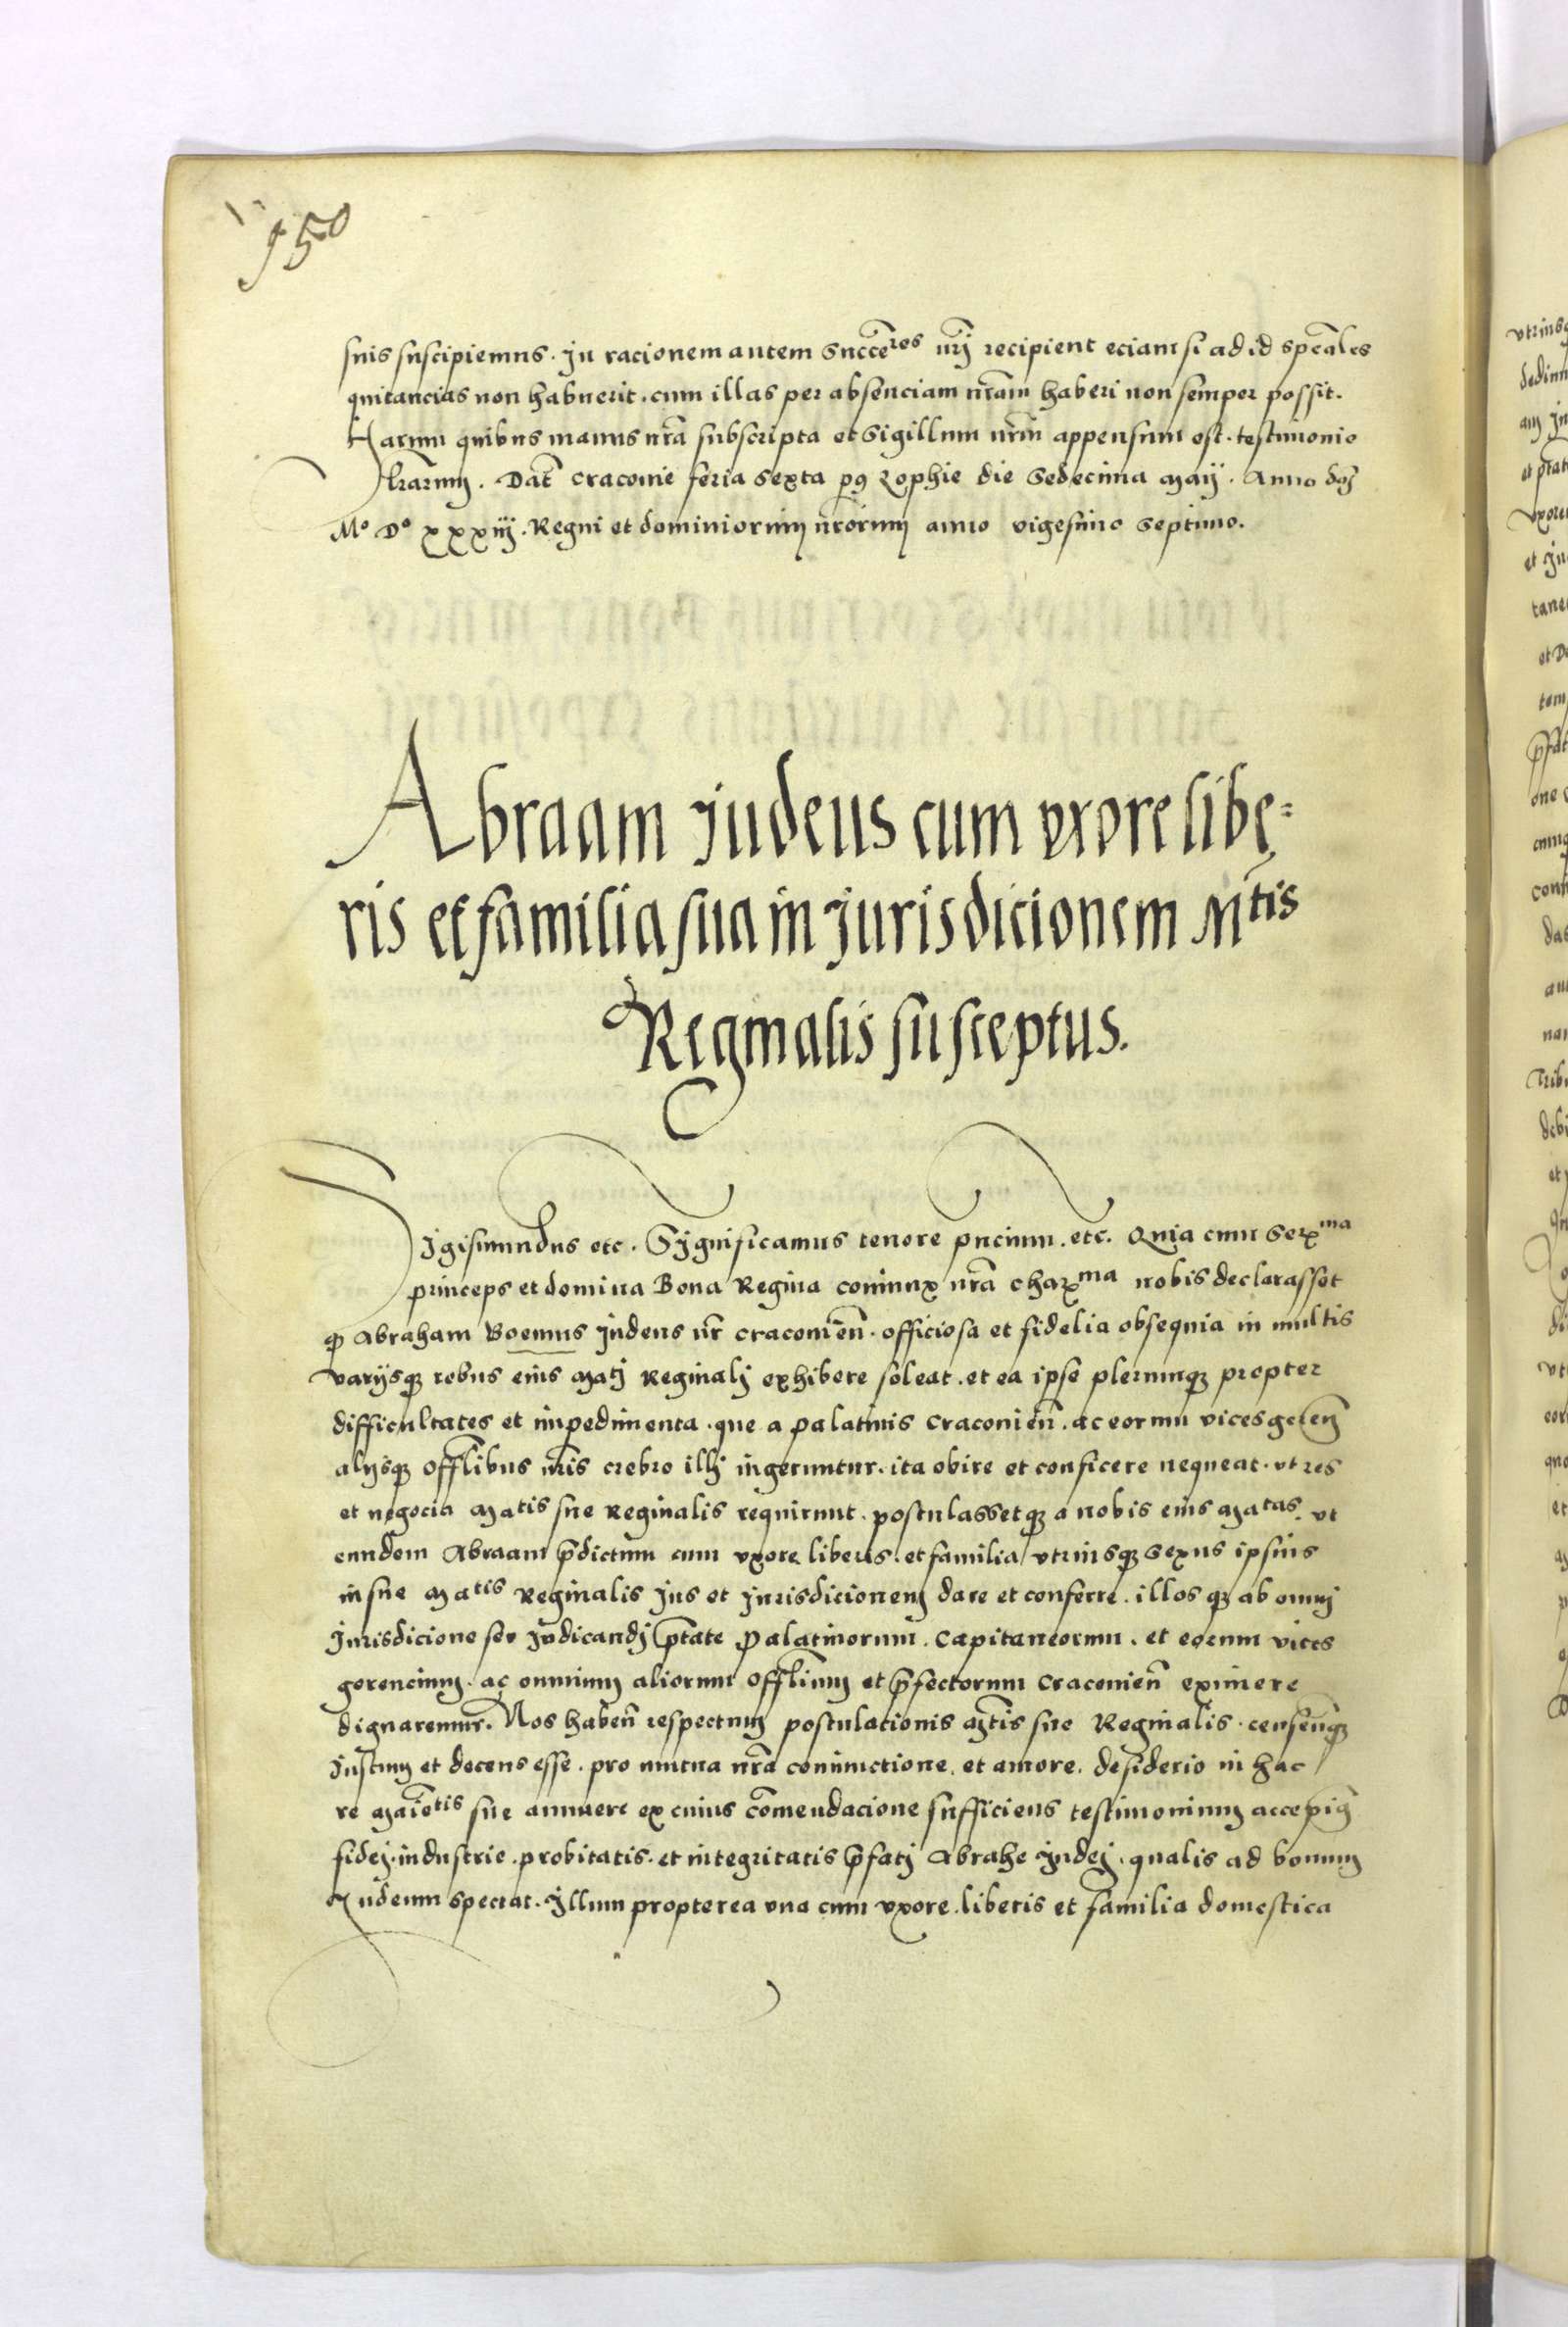 150
suis suscipiemus. In racionem autem succc̄res nrj̄ recipient eciam si ad id spēales
quitancias non habuerit. cum illas per absenciam nrām haberi non semper possit.
Harum quibus manus nrā subscripta et sigillum nrm̄ appensum est. testimonio
lrārum. Dat̄ Cracovie feria sexta pꝰ Zophie die sedecima maij. Anno dnj̄
Mº Dº xxxiij. Regni et dominiorum nrōrum anno vigesimo septimo.
Abraam Judeus cum vxore libe=
ris et familia sua in jurisdicionem Mtis
Reginalis susceptus.
Sigismundus etc. Significamus tenore pn̄cium. etc. Quia cum Serma
princeps et domina Bona Regina coniunx nrā charma nobis declarasset
qꝫ Abraham Boemus Judeus nr̄ Cracovien̄. officiosa et fidelia obsequia in multis
varijsqꝫ rebus eius Matj Reginalj exhibere soleat. et ea ipse plerumqꝫ propter
difficultates et impedimenta. que a palatinis Cracovien̄. ac eorum vicesgeren̄
alijsqꝫ offlībus nrīs crebro illj ingeruntur. ita obire et conficere nequeat. vt res
et negocia Matis sue Reginalis requirunt. postulassetqꝫ a nobis eius Matas. vt
eundem Abraam p̄dictum cum vxore liberis. et familia vtriusqꝫ sexus ipsius
in sue Matis Reginalis Jus et Jurisdicionem dare et conferre. illosqꝫ ab omnj
Jurisdicione seu Judicandj ptāte Palatinorum. Capitaneorum. et eorum vices
gerencium. ac omnium aliorum offlīum et p̄fectorum Cracovien̄ eximere
dignaremur. Nos haben̄ respectum postulationis Mtis sue Reginalis. censen̄qꝫ
Justum et decens esse. pro mutua nrā coniunctione. et amore. desiderio in hac
re Maiētis sue annuere ex cuius cōmendacione sufficiens testimonium accepim̄
fidej. industrie. probitatis. et integritatis p̄fatj Abrahe Judej. qualis ad bonum
Judeum spectat. Illum propterea vna cum vxore. liberis et familia domestica